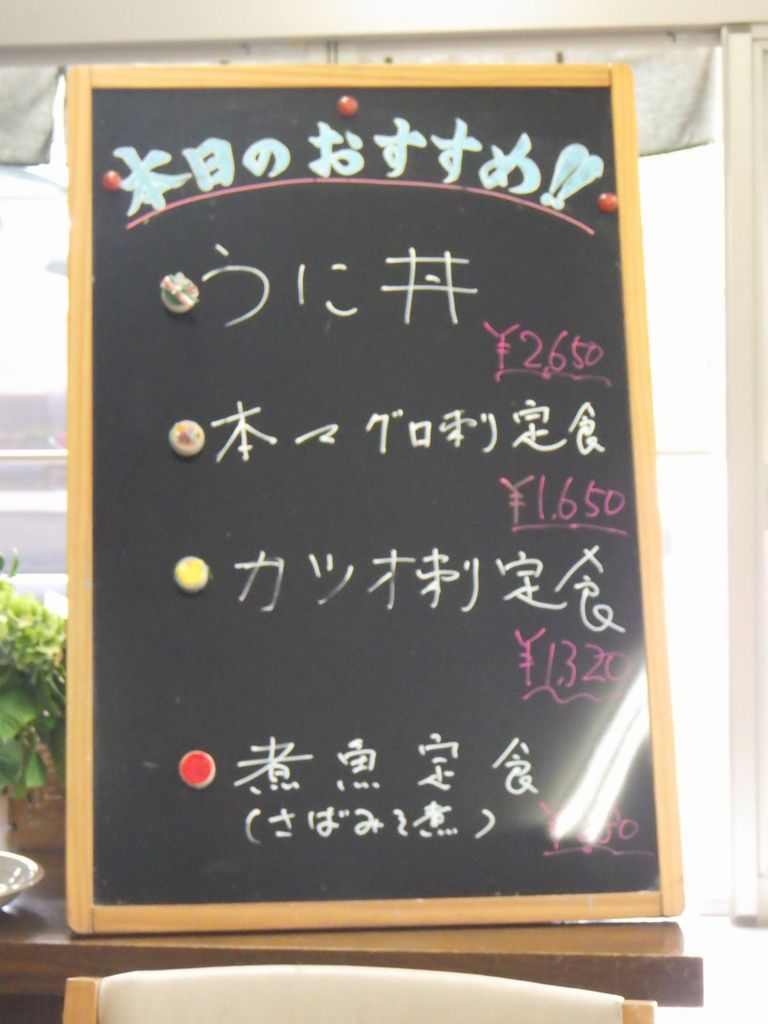 本日のおすすめ!!
うに丼
¥2,650
本マグロ刺定食
¥1,650
カツオ刺定食
¥1,320
煮魚定食
(さばみそ煮)